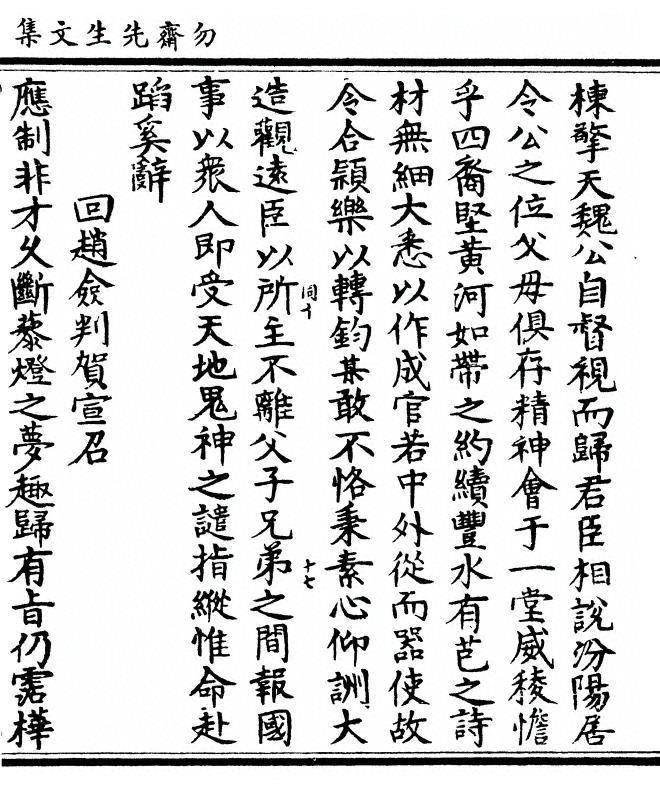 勿齋先生文集
棟擎天魏公自督視而歸君臣相說汾陽居
令公之位父母俱存精神會于一堂威稜憺
乎四裔堅黄河如帶之約續豐水有芑之詩
材無細大悉以作成官若中外從而器使故
令合頴樂以轉鈞某敢不恪秉素心仰詶大
造觀遠臣以所主不離父子兄弟之間報國
同十
十七
事以衆人即受天地鬼神之譴指縱惟命赴
蹈奚辭
回趙僉判賀宣召
應制非才久斷藜燈之夢趣歸有旨仍霑樺